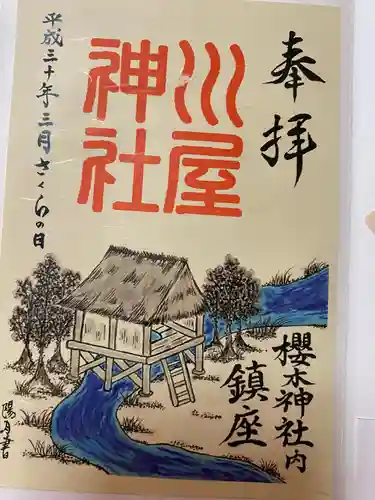 奉拝
川屋
神社
平成三十年三月さくらの日
櫻木神社内
鎮座